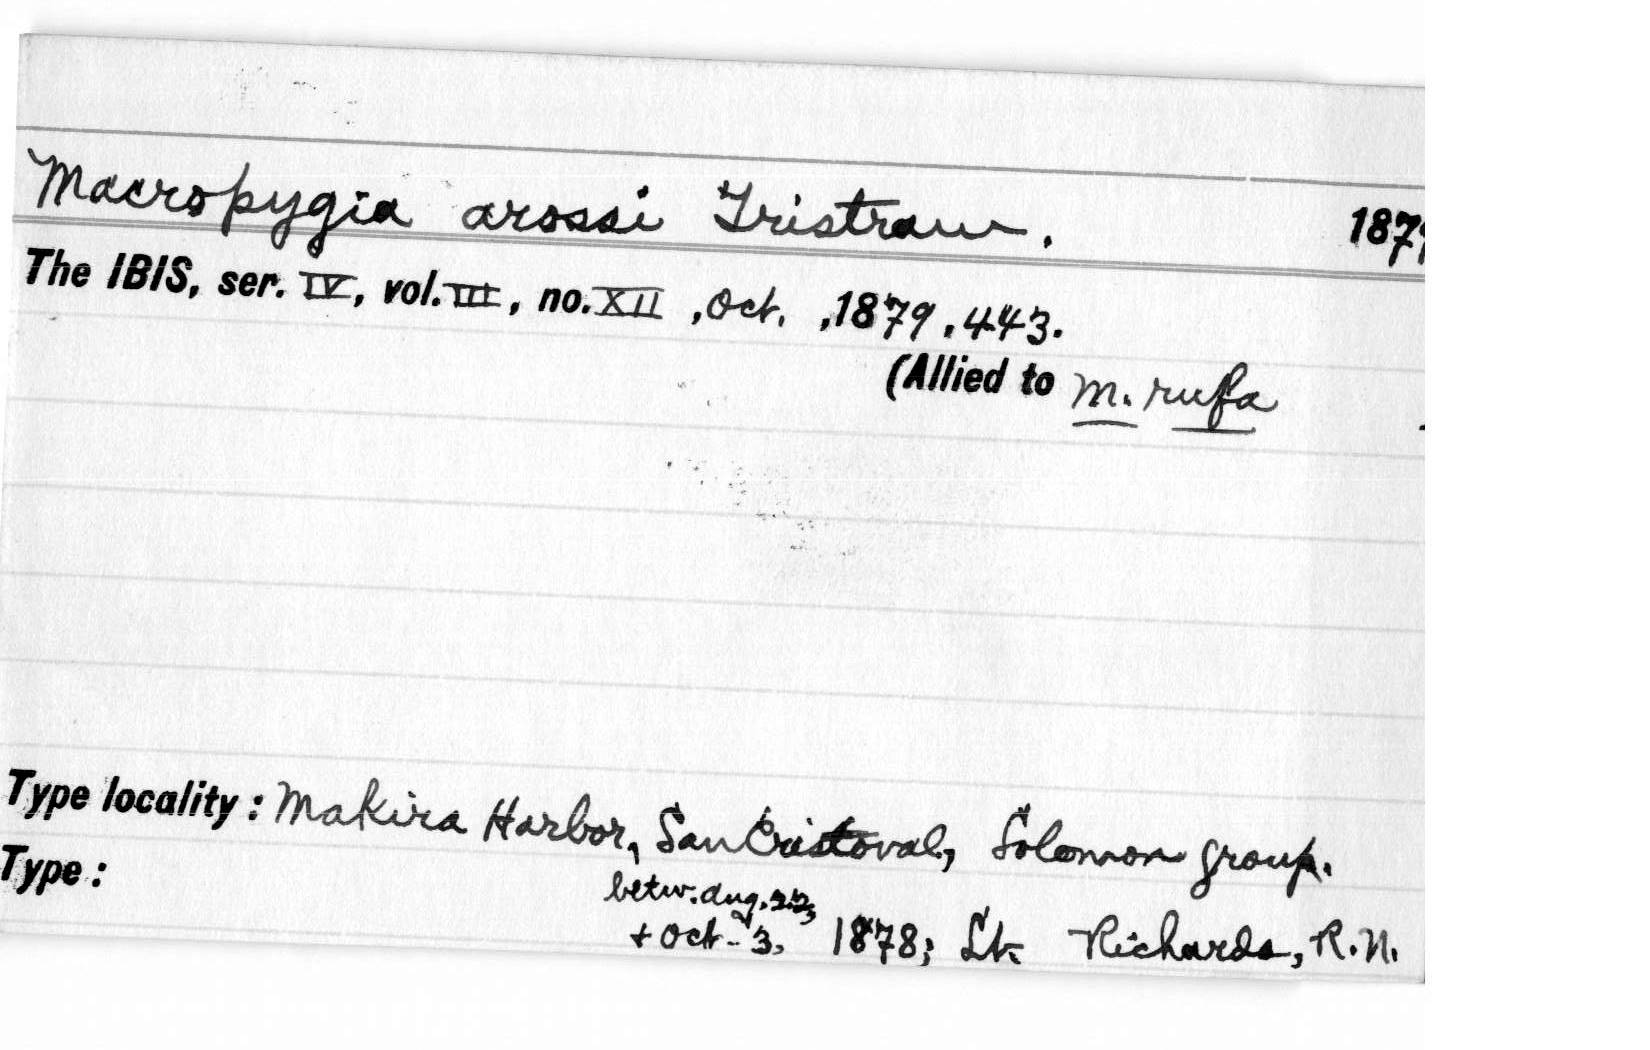 Macropygia arossi Tristram. 1879
The IBIS, ser. IV, vol. III, no. XII, Oct., 1879, 443.
(Allied to M. rufa
Type locality: Makira Harbor, San Cristoval, Solomon group.
Type:
betw. Aug. 22,
+ Oct. 3, 1878; Lt. Richards, R.N.